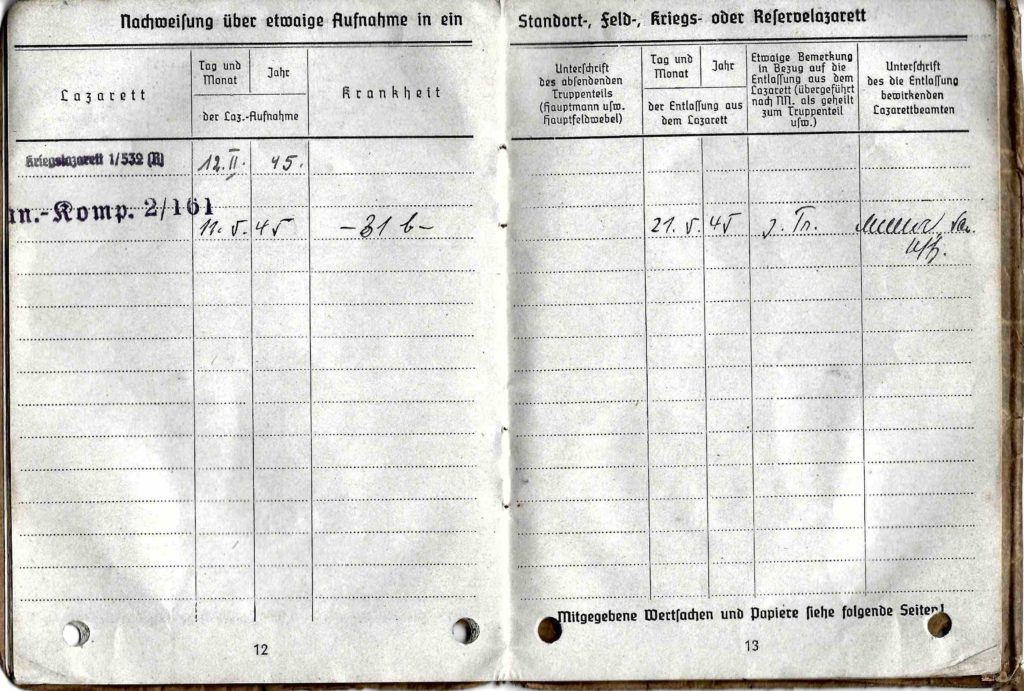 Nachweisung über etwaige Aufnahme in ein
Lazarett
Tag und
Monat
Jahr
der Laz.-Aufnahme
Krankheit
Kriegslazarett 1/532 (R)
12. II. 45.
an.-Komp. 2/161
11. 5. 45 -31 b-
12
Standort-, Feld-, Kriegs- oder Reservelazarett
Unterschrift
des absendenden
Truppenteils
(Hauptmann usw.
Hauptfeldwebel)
Tag und
Monat
Jahr
der Entlassung aus
dem Lazarett
Etwaige Bemerkung
in Bezug auf die
Entlassung aus dem
Lazarett (übergeführt
nach NN. als geheilt
zum Truppenteil
usw.)
Unterschrift
des die Entlassung
bewirkenden
Lazarettbeamten
21. 5. 45 z. Tr.
Uffz.
Mitgegebene Wertsachen und Papiere siehe folgende Seiten!
13